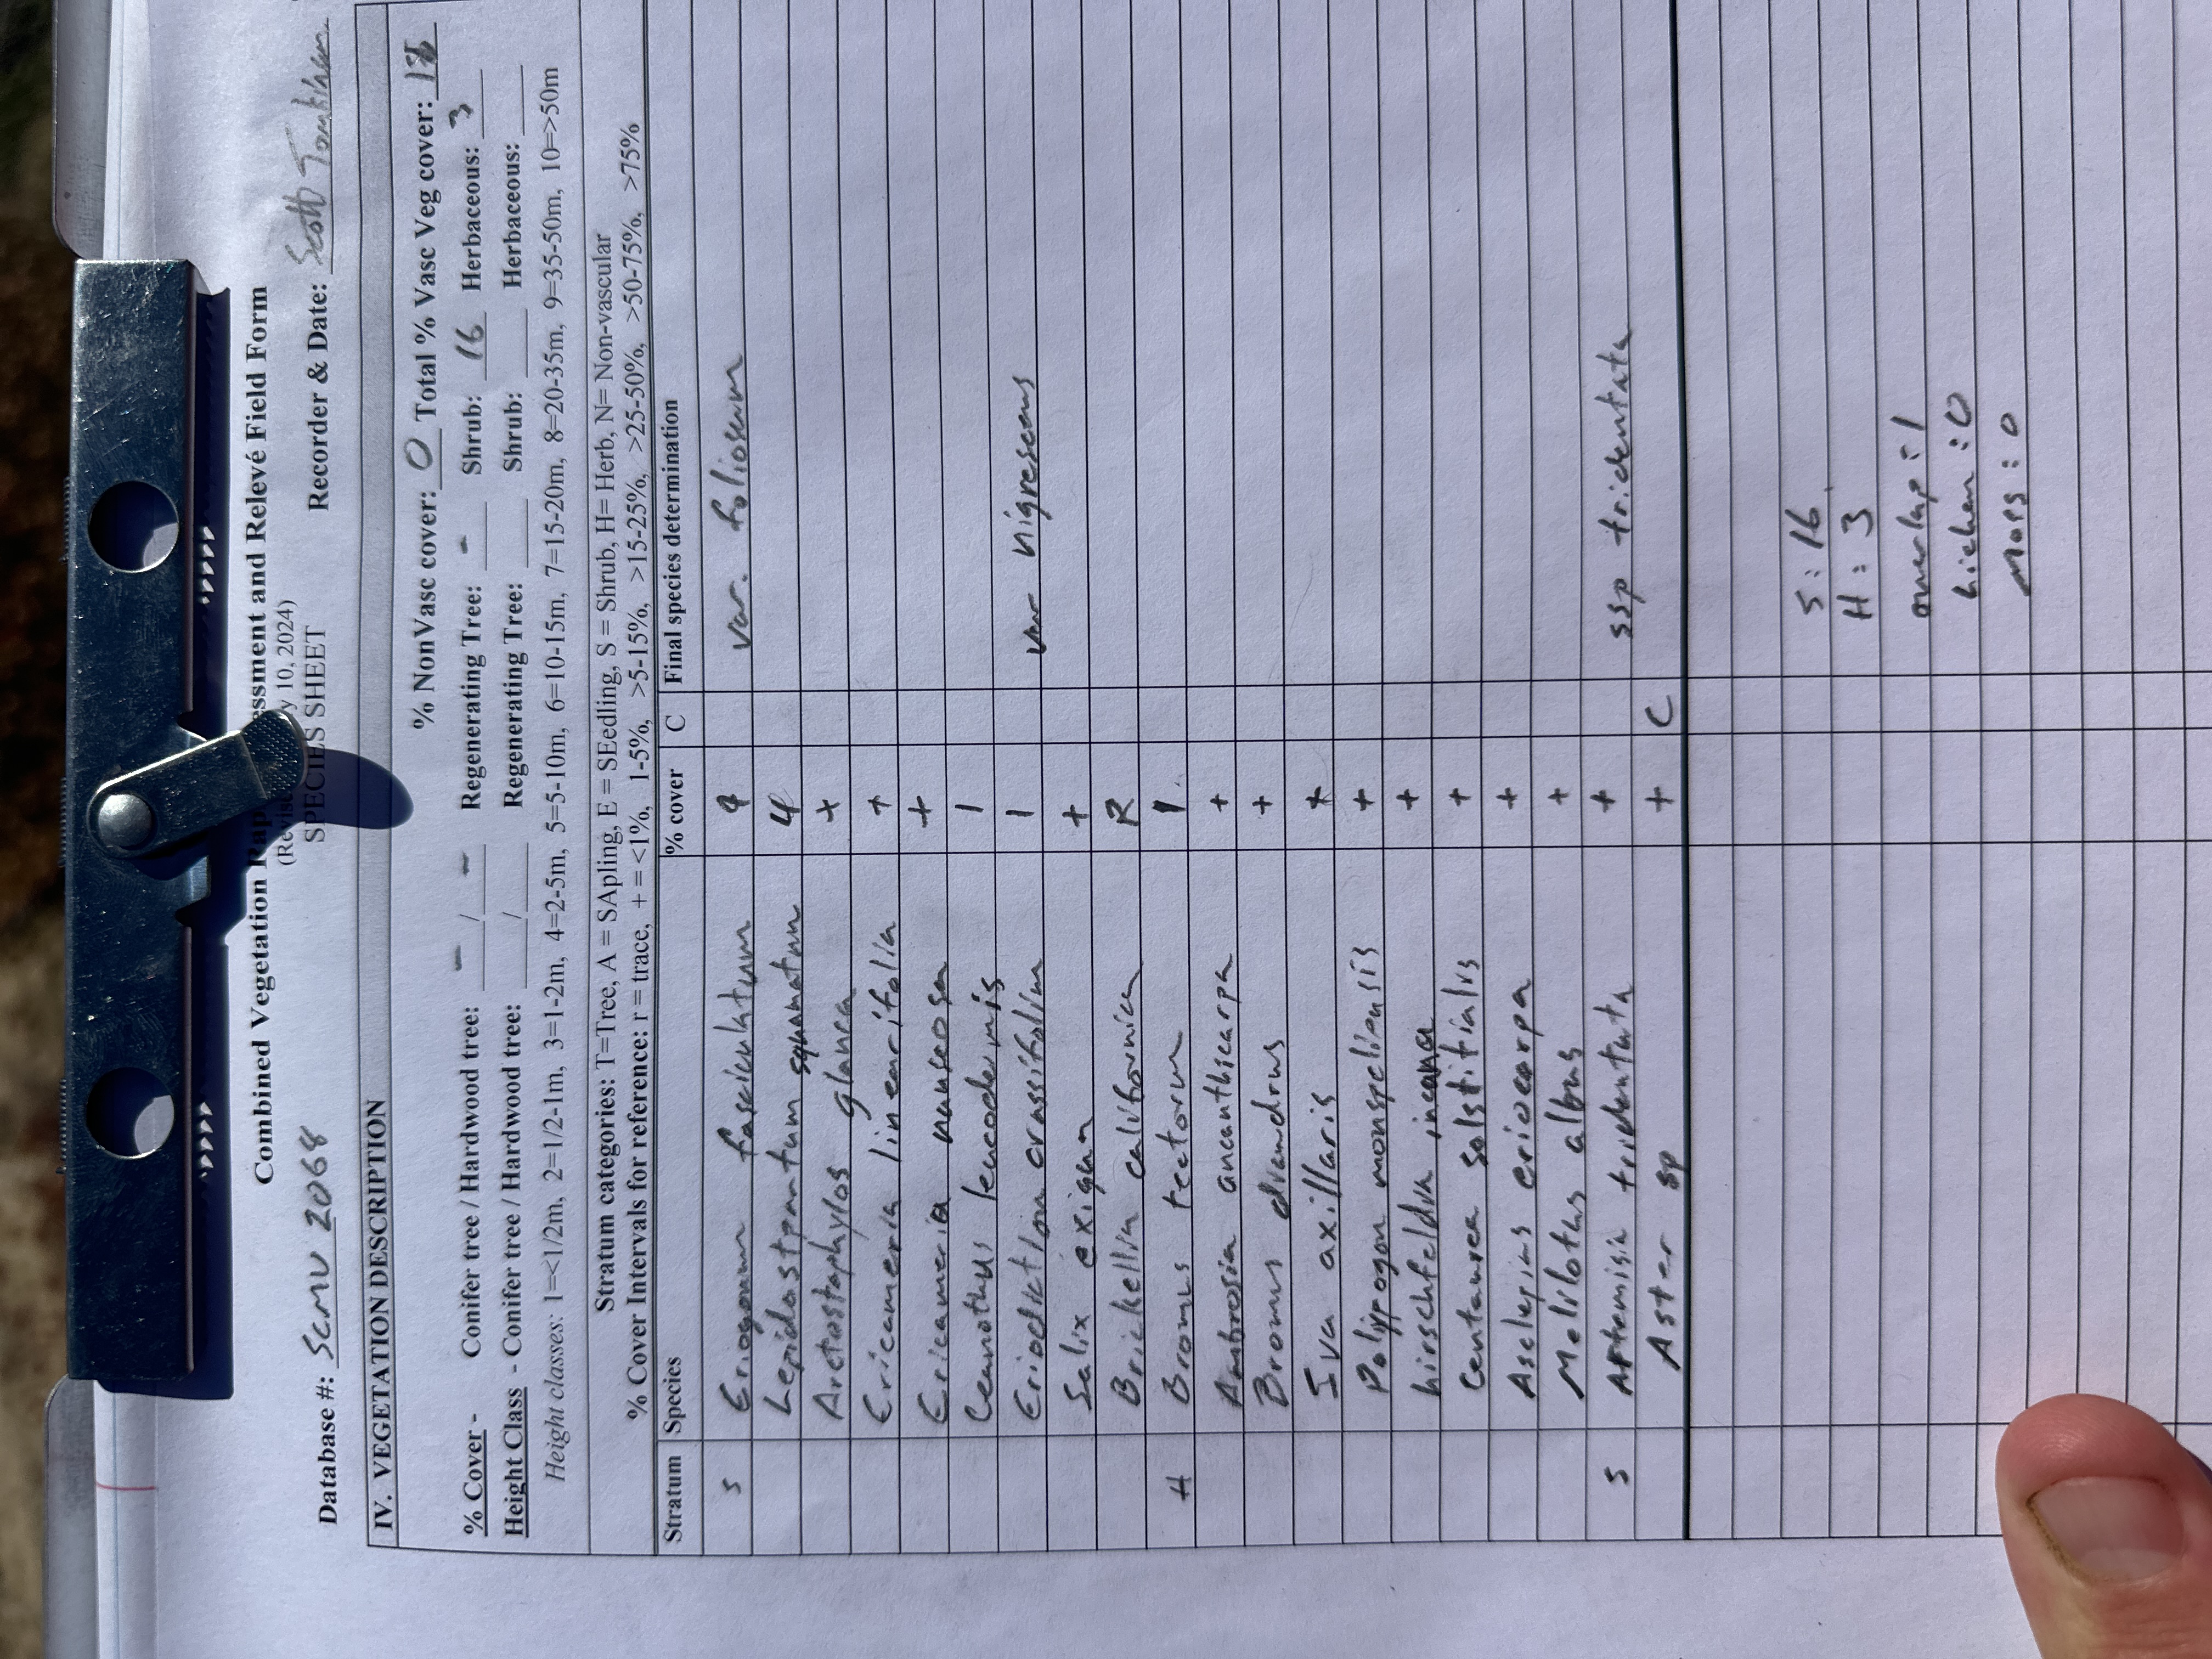 Combined Vegetation Rap essment and Relevé Field Form
(Revise y 10, 2024)
SPECIES SHEET
Database #: SCMU 2068 Recorder & Date: Scott Tomkins
IV. VEGETATION DESCRIPTION
% NonVasc cover: 0 Total % Vasc Veg cover: 18
% Cover - Conifer tree / Hardwood tree: - / - Regenerating Tree: - Shrub: 16 Herbaceous: 3
Height Class - Conifer tree / Hardwood tree: / Regenerating Tree: Shrub: Herbaceous:
Height classes: 1=<1/2m, 2=1/2-1m, 3=1-2m, 4=2-5m, 5=5-10m, 6=10-15m, 7=15-20m, 8=20-35m, 9=35-50m, 10=>50m
Stratum categories: T=Tree, A = SApling, E = SEedling, S = Shrub, H= Herb, N= Non-vascular
% Cover Intervals for reference: r = trace, + = <1%, 1-5%, >5-15%, >15-25%, >25-50%, >50-75%, >75%
Stratum Species % cover C Final species determination
S Eriogonum fasciculatum 9 var. foliosum
Lepidospartum squamatum 4
Arctostaphylos glauca +
Ericameria linearifolia +
Ericameria nauseosa +
Ceanothus leucodermis 1
Eriodiction crassifolium 1 var nigrescens
Salix exigua +
Brickellia californica R
H Bromus tectorum 1
Ambrosia ancanthicarpa +
Bromus diandrus +
Iva axillaris +
Polypogon monspeliensis +
hirschfeldia incana +
Centaurea solstitialis +
Asclepias eriocarpa +
Melilotus albus +
S Artemisia tridentata + ssp tridentata
Aster sp + C
S: 16
H: 3
overlap: 1
lichen: 0
Moss: 0